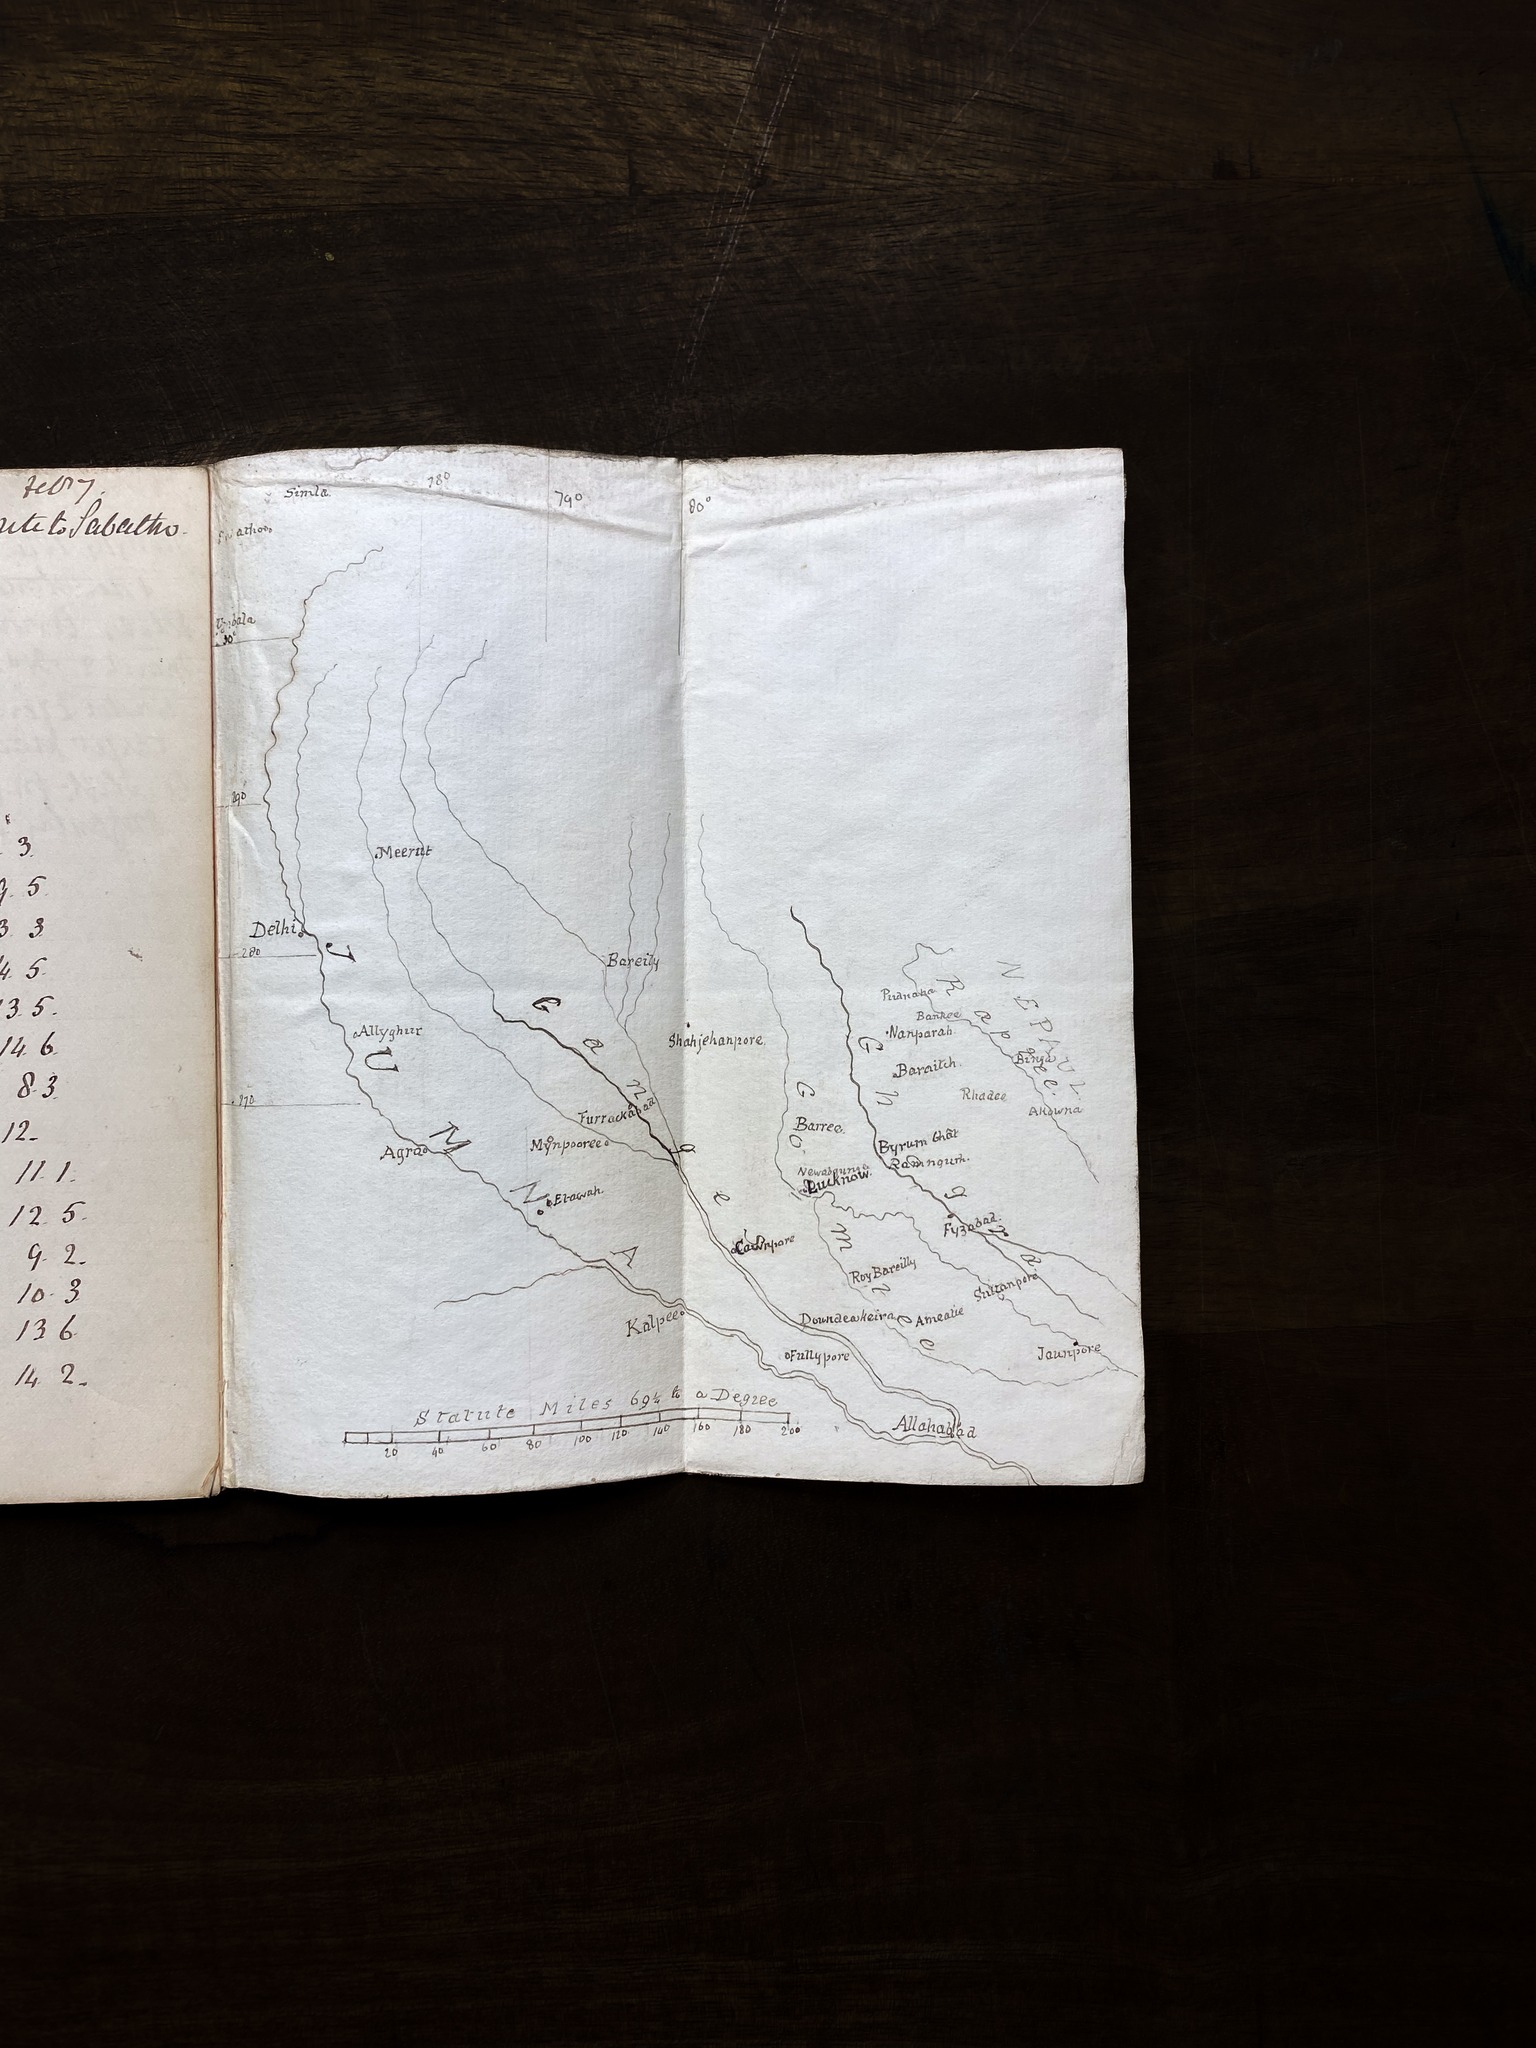 Feby.
Route to Sabathoo.
3.
9. 5.
3 3
4. 5.
13. 5.
14. 6.
8. 3.
12.
11. 1.
12. 5.
9. 2.
10. 3
13 6
14. 2.
78°
79°
80°
Simla.
Umbala
30°
29°
Meerut
Delhi
28°
Bareily
JUMNA
Ganges
Allyghur
Shahjehanpore
27°
Furrackabad
Mynpooree
Agra
Etawah.
Cawnpore
Kalpee
NEPAUL
Raptee
Bankee
Nanparah
Baraitch.
Binga
Rhadee
Akowna
Goomtee
Gogra
Barree.
Byrum Ghat
Ramngurh.
Newabgunge
Lucknow.
Fyzabad.
Roy Bareilly
Sultanpore
Doundeakeira
Ameatie
Fullypore
Jaunpore
Allahabad
Statute Miles 69¼ to a Degree
20 40 60 80 100 120 140 160 180 200